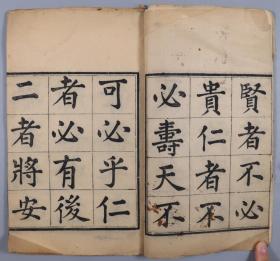 賢者不必
貴仁者不
必壽天不
可必乎仁
者必有後
二者將安